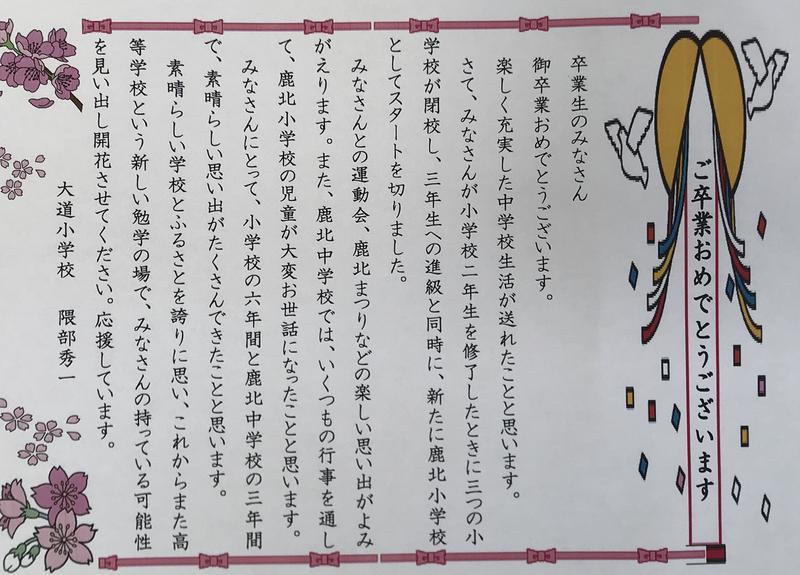 ご卒業おめでとうございます
卒業生のみなさん
御卒業おめでとうございます。
楽しく充実した中学校生活が送れたことと思います。
さて、みなさんが小学校二年生を修了したときに三つの小
学校が閉校し、三年生への進級と同時に、新たに鹿北小学校
としてスタートを切りました。
みなさんとの運動会、鹿北まつりなどの楽しい思い出がよみ
がえります。また、鹿北中学校では、いくつもの行事を通し
て、鹿北小学校の児童が大変お世話になったことと思います。
みなさんにとって、小学校の六年間と鹿北中学校の三年間
で、素晴らしい思い出がたくさんできたことと思います。
素晴らしい学校とふるさとを誇りに思い、これからまた高
等学校という新しい勉学の場で、みなさんの持っている可能性
を見い出し開花させてください。応援しています。
大道小学校 隈部秀一